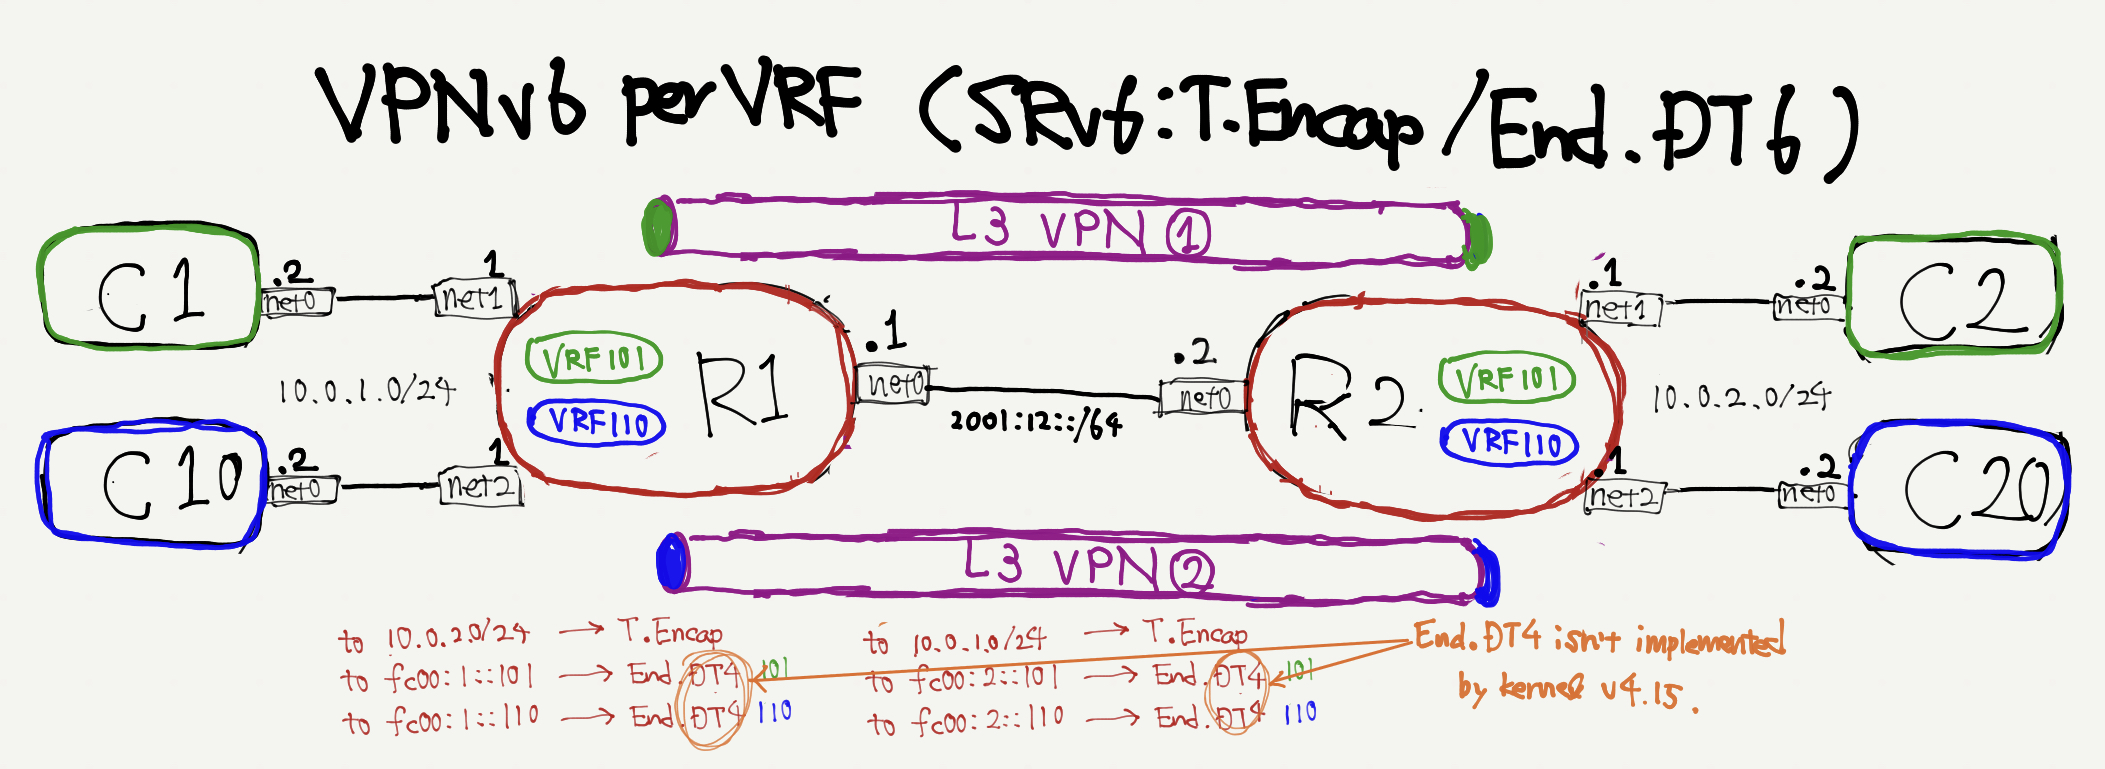 VPNv6 per VRF (SRv6:T.Encap/End.DT6)
L3 VPN ①
C1
.2
net0
1
net1
VRF101
VRF110
R1
.1
net0
2001:12::/64
.2
net0
R2
VRF101
VRF110
.1
net1
.2
net0
C2
10.0.1.0/24
10.0.2.0/24
C10
.2
net0
1
net2
.1
net2
.2
net0
C20
L3 VPN ②
to 10.0.2.0/24 → T.Encap
to fc00:1::101 → End.DT4 101
to fc00:1::110 → End.DT4 110
to 10.0.1.0/24 → T.Encap
to fc00:2::101 → End.DT4 101
to fc00:2::110 → End.DT4 110
End.DT4 isn't implemented
by kernel v4.15.